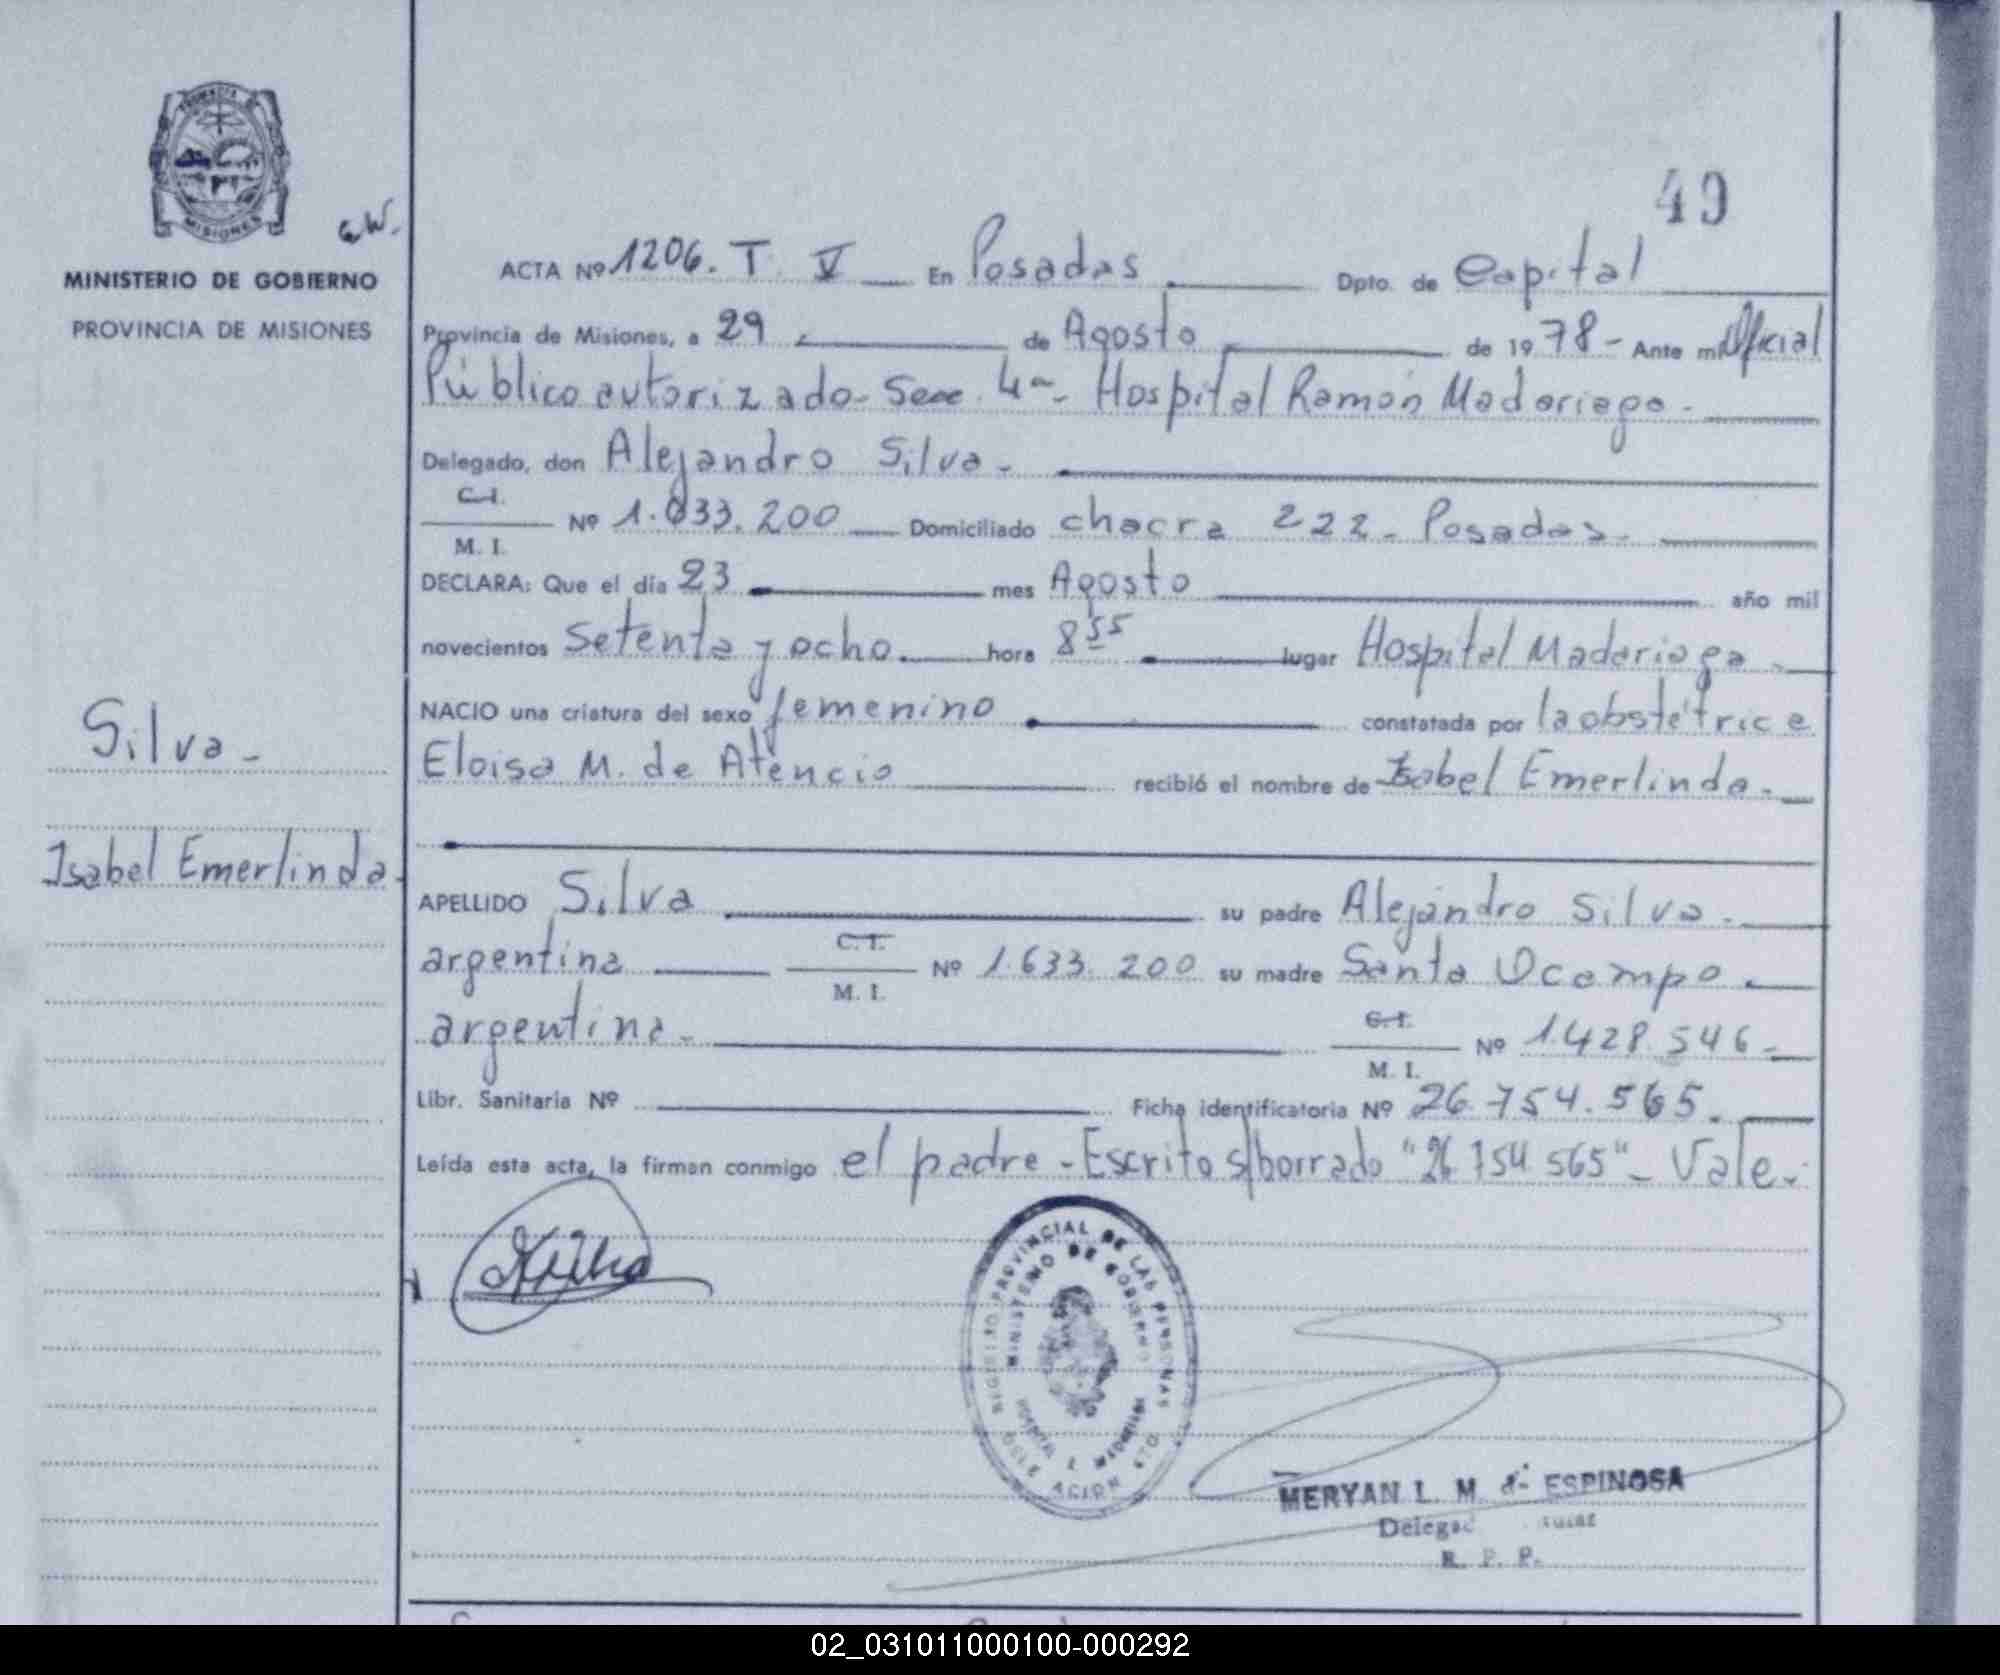 49
G.W.
MINISTERIO DE GOBIERNO
PROVINCIA DE MISIONES
ACTA Nº 1206. T. V En Posadas Dpto. de Capital
Provincia de Misiones, a 29 de Agosto de 1978- Ante mi Oficial
Público autorizado- Secc. 4ª- Hospital Ramón Madariaga-
Delegado, don Alejandro Silva-
C.I.
M. I.
Nº 1.633.200 Domiciliado chacra 222- Posadas-
DECLARA: Que el día 23 mes Agosto año mil
novecientos Setenta y ocho hora 8 55 lugar Hospital Madariaga-
NACIO una criatura del sexo femenino constatada por la obstétrice
Eloisa M. de Atencio recibió el nombre de Isabel Emerlinda-
Silva-
Isabel Emerlinda-
APELLIDO Silva su padre Alejandro Silva-
argentina C.I. M. I. Nº 1.633.200 su madre Santa Ocampo
argentina- C.I. M. I. Nº 1.428.546-
Libr. Sanitaria Nº Ficha identificatoria Nº 26.754.565.
Leída esta acta, la firman conmigo el padre-Escrito s/borrado "26.754.565"- Vale-
REGISTRO PROVINCIAL DE LAS PERSONAS
MINISTERIO DE GOBIERNO
MERYAN L. M. de ESPINOSA
R. P. P.
02_031011000100-000292